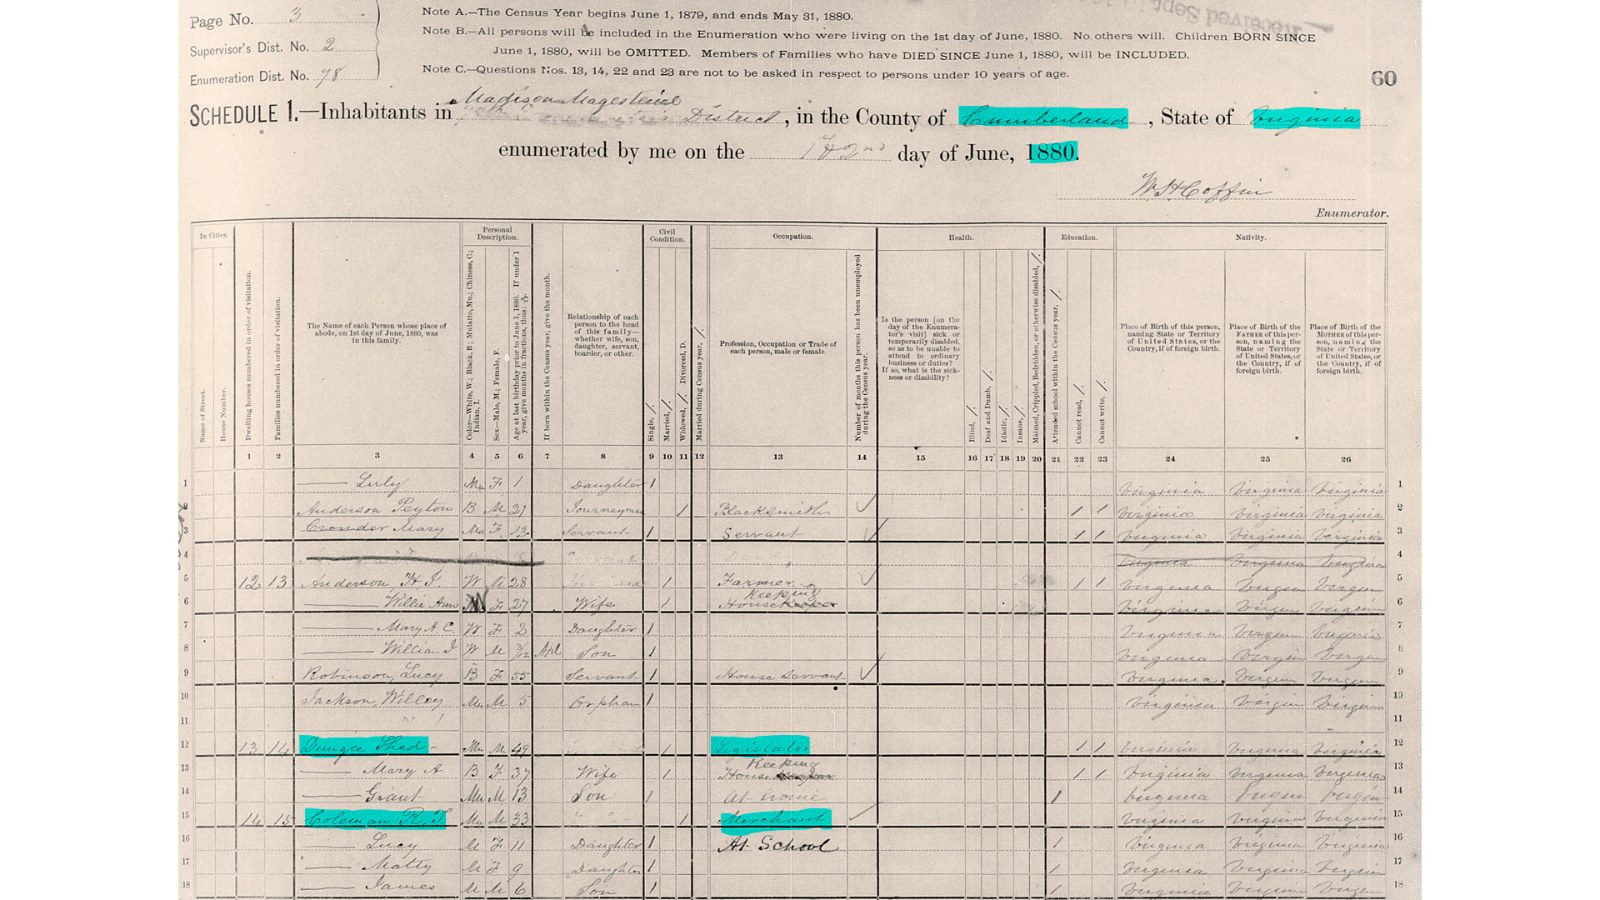 Page No. 3
Supervisor's Dist. No. 2
Enumeration Dist. No. 78
Note A.—The Census Year begins June 1, 1879, and ends May 31, 1880.
Note B.—All persons will be included in the Enumeration who were living on the 1st day of June, 1880. No others will. Children BORN SINCE
June 1, 1880, will be OMITTED. Members of Families who have DIED SINCE June 1, 1880, will be INCLUDED.
Note C.—Questions Nos. 13, 14, 22 and 23 are not to be asked in respect to persons under 10 years of age.
60
Madison Magesterial
SCHEDULE 1.—Inhabitants in District, in the County of Cumberland, State of Virginia
enumerated by me on the 1 & 2nd day of June, 1880.
W. H. Coffin
Enumerator.
In Cities. Personal Description. Civil Condition. Occupation. Health. Education. Nativity.
Name of Street.
House Number.
Dwelling houses numbered in order of visitation.
Families numbered in order of visitation.
The Name of each Person whose place of abode, on 1st day of June, 1880, was in this family.
Color—White, W.; Black, B.; Mulatto, Mu.; Chinese, C.; Indian, I.
Sex—Male, M.; Female, F.
Age at last birthday prior to June 1, 1880. If under 1 year, give months in fractions, thus: 3/12
If born within the Census year, give the month.
Relationship of each person to the head of this family—whether wife, son, daughter, servant, boarder, or other.
Single, /.
Married, /.
Widowed, /. Divorced, D.
Married during Census year, /.
Profession, Occupation or Trade of each person, male or female.
Number of months this person has been unemployed during the Census year.
Is the person [on the day of the Enumerator's visit] sick or temporarily disabled, so as to be unable to attend to ordinary business or duties? If so, what is the sickness or disability?
Blind, /.
Deaf and Dumb, /.
Idiotic, /.
Insane, /.
Maimed, Crippled, Bedridden, or otherwise disabled, /.
Attended school within the Census year, /.
Cannot read, /.
Cannot write, /.
Place of Birth of this person, naming State or Territory of United States, or the Country, if of foreign birth.
Place of Birth of the FATHER of this person, naming the State or Territory of United States, or the Country, if of foreign birth.
Place of Birth of the MOTHER of this person, naming the State or Territory of United States, or the Country, if of foreign birth.
1 2 3 4 5 6 7 8 9 10 11 12 13 14 15 16 17 18 19 20 21 22 23 24 25 26
1 —— Luly Mu F 1 Daughter / Virginia Virginia Virginia 1
2 Anderson Peyton B M 21 Journeyman / Blacksmith / / Virginia Virginia Virginia 2
3 Mary Mu F 13 Servant / Servant / / Virginia Virginia Virginia 3
4 Virginia Virginia Virginia 4
5 12 13 Anderson W M 28 / Farmer / / Virginia Virgin Virgin 5
Keeping
6 —— Willie Ann W F 27 Wife / House Virginia Virginia Virgin 6
7 —— Mary A. C. W F 2 Daughter / Virginia Virginia Virginia 7
8 —— William J W M 3/12 Son / Virginia Virgin Virgin 8
9 Robinson, Lucy B F 55 Servant / House Servant Virginia Virgin Virgin 9
10 Jackson, Willey Mu M 5 Orphan / Virginia Virgin Virginia 10
11 11
12 13 14 Dungee Shed Mu M 49 / Legislator / / Virginia Virginia Virginia 12
Keeping
13 —— Mary A B F 37 Wife / House / / Virginia Virginia Virginia 13
14 —— Grant Mu M 13 Son / At home / Virginia Virgin Virgin 14
15 14 15 Coleman R. T. Mu M 33 / Merchant Virginia Virginia Virginia 15
16 —— Lucy M F 11 Daughter / At School / Virginia Virginia Virginia 16
17 —— Matty M F 9 Daughter / / Virginia Virginia Virgin 17
18 —— James M M 6 Son / / Virginia Virgin Virgin 18